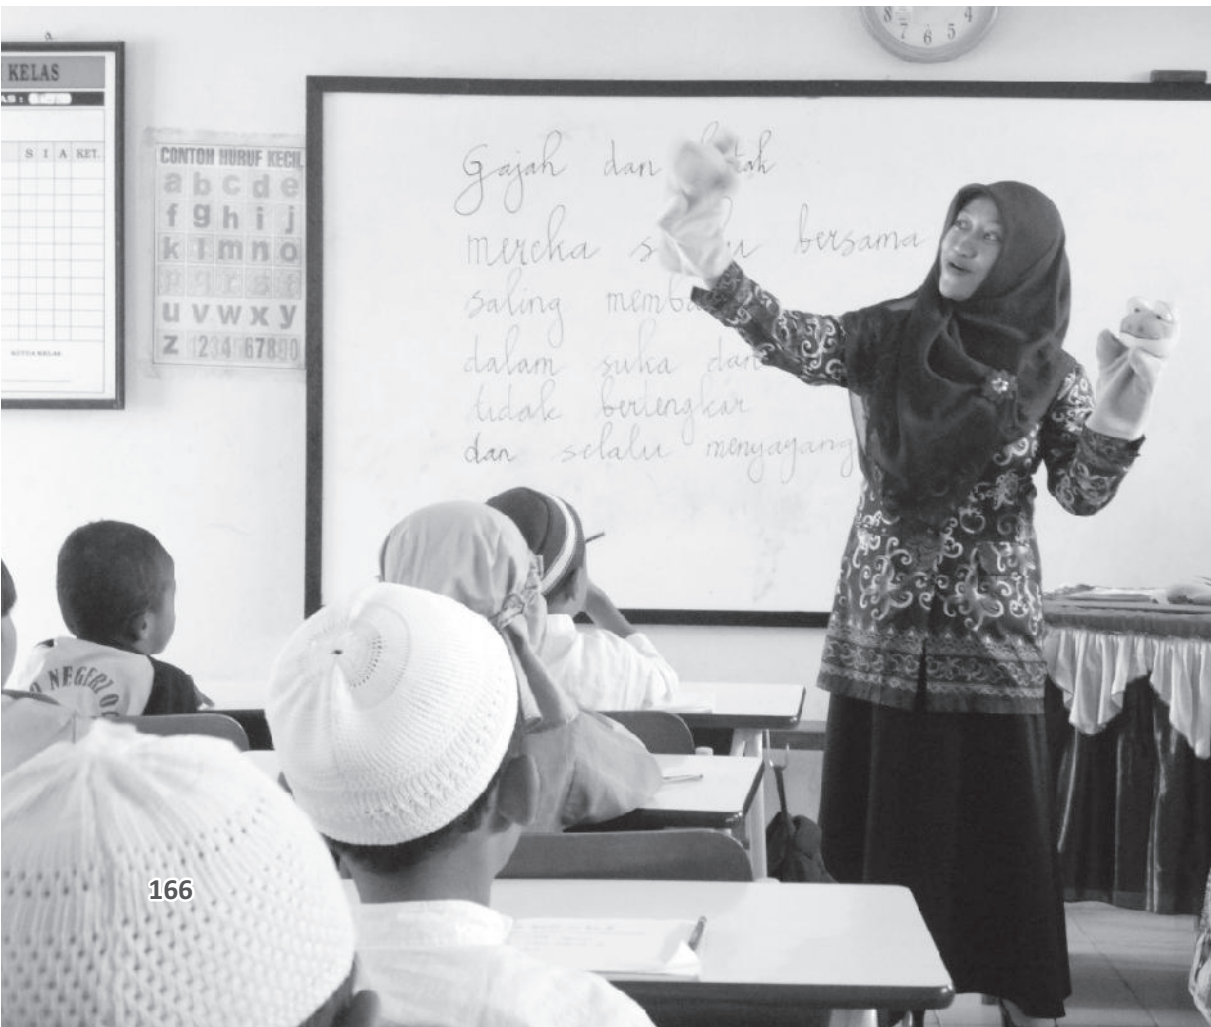 8 4
7 6 5
KELAS
S I A KET.
KETUA KELAS
CONTOH HURUF KECIL
a b c d e
f g h i j
k l m n o
p q r s t
u v w x y
z 1234 67890
Gajah dan
mereka bersama
saling
dalam suka dan
tidak bertengkar
dan selalu menyayang
NEGERI 0
166